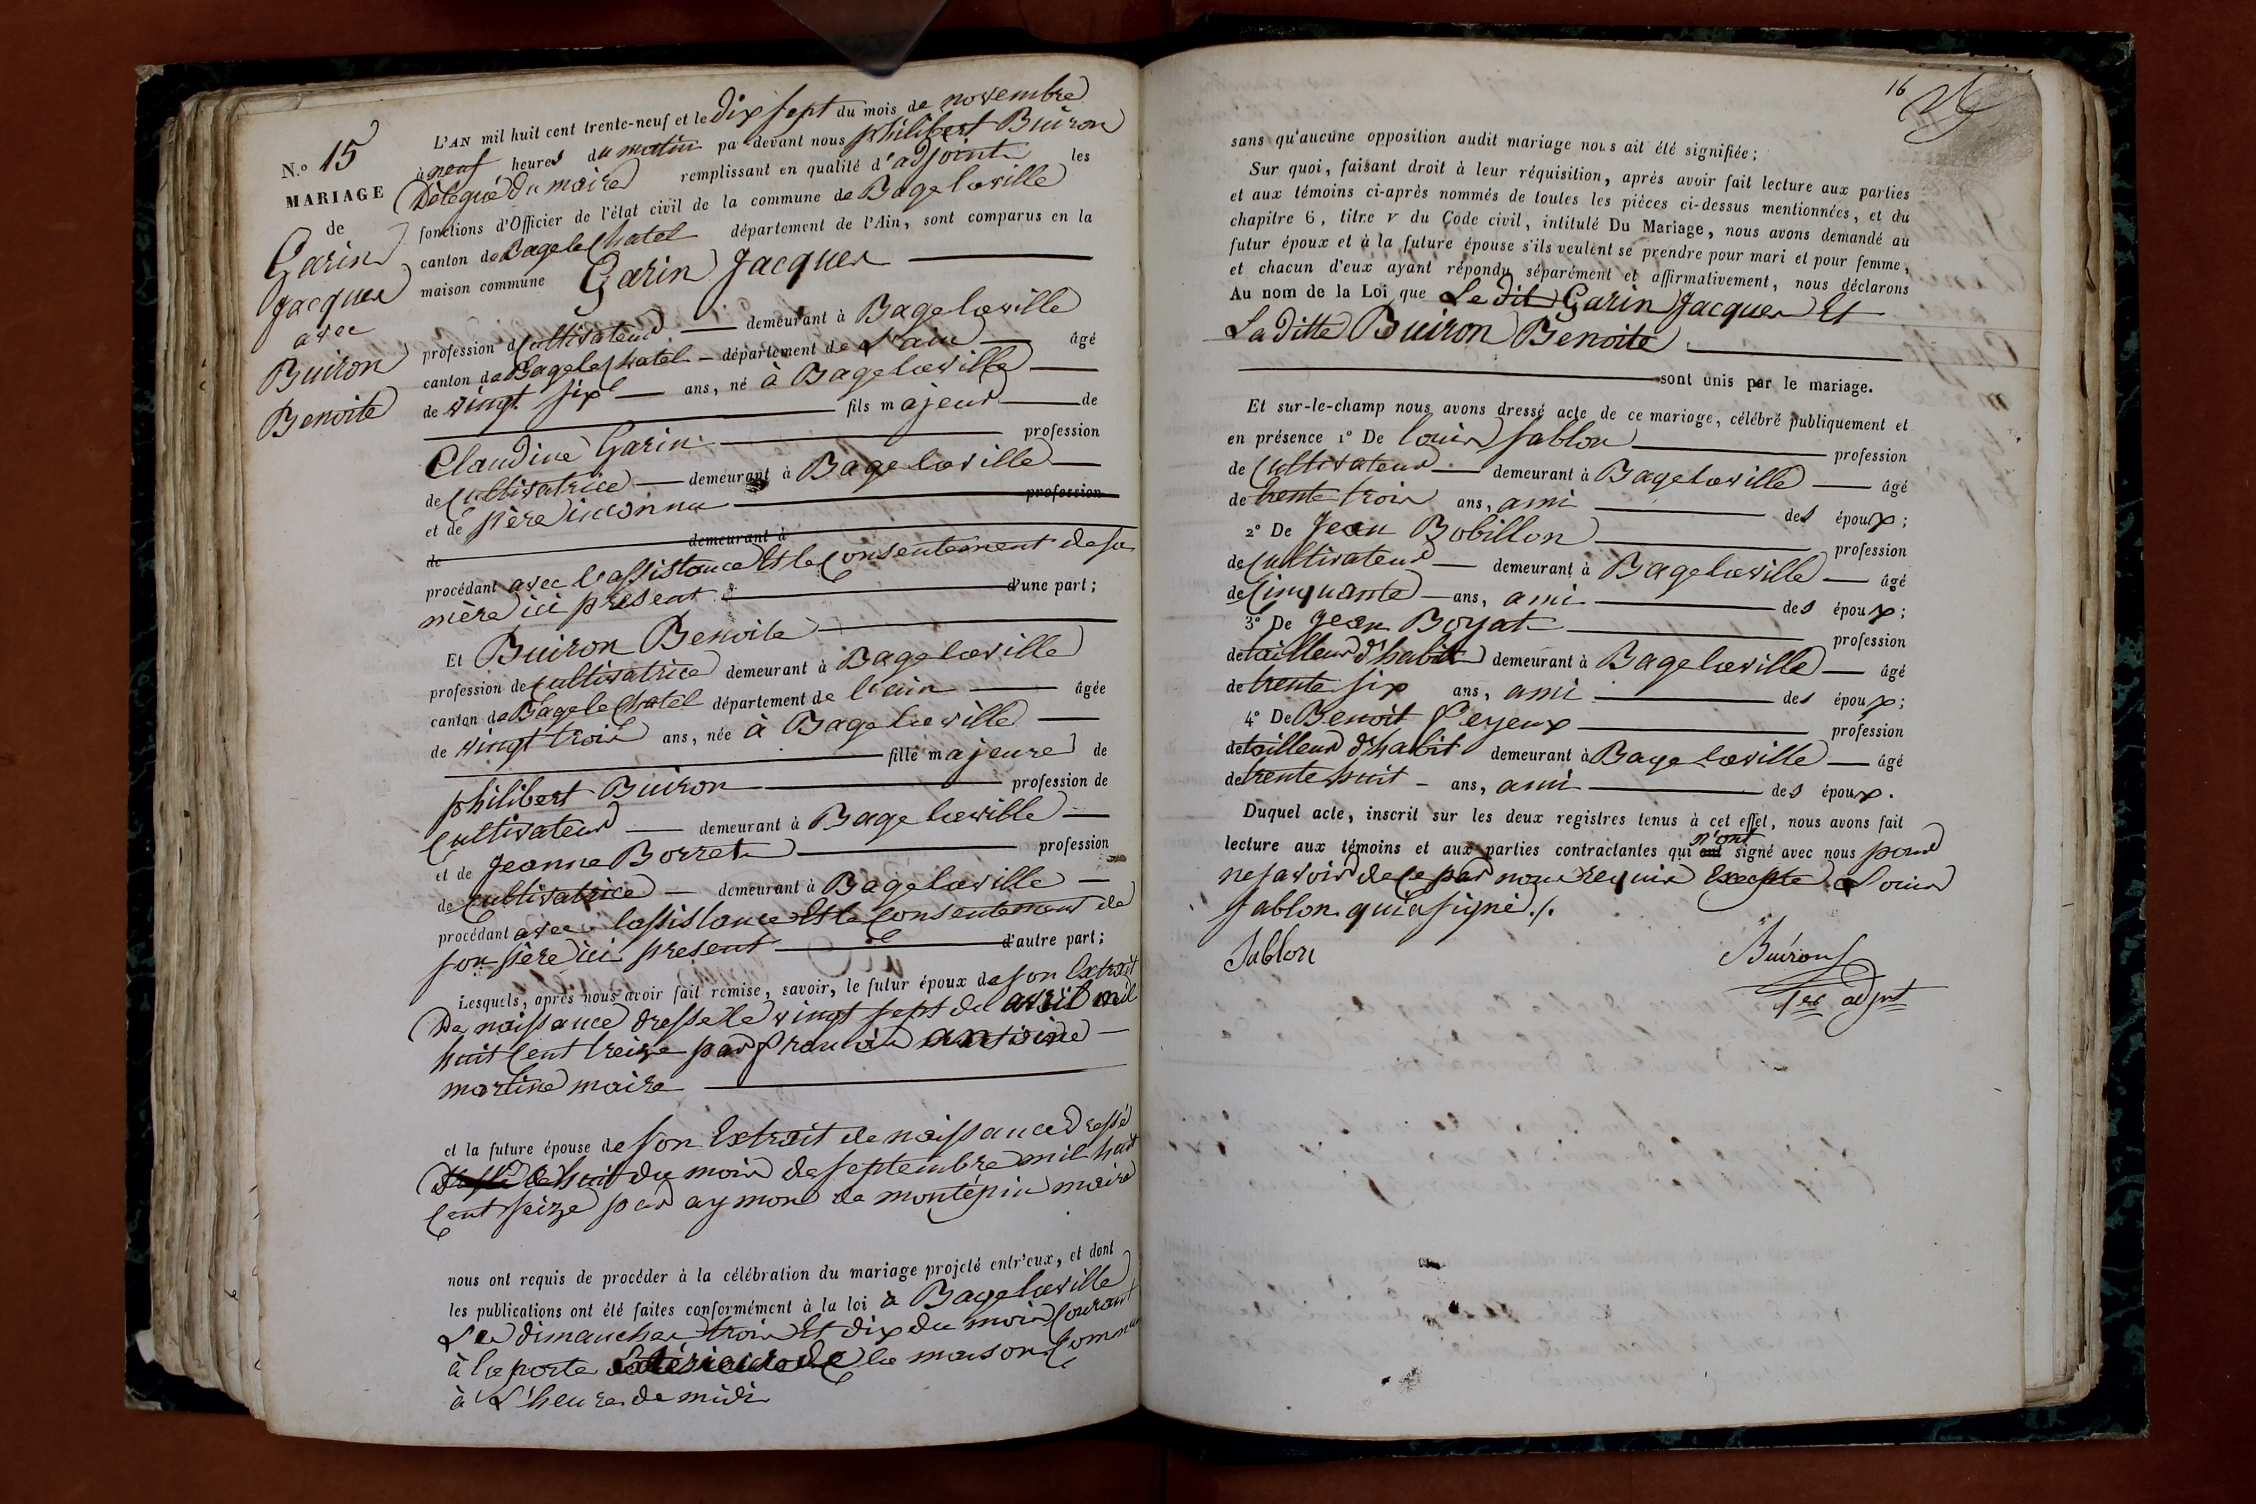 N.° 15
MARIAGE
de
Garin
Jacques
avec
Buiron
Benoite
L'AN mil huit cent trente-neuf et le dix sept du mois de novembre
à neuf heures du matin pa devant nous philibert Buiron
Délégué du maire remplissant en qualité d'adjoint les
fonctions d'Officier de l'état civil de la commune de Bagelaville
canton de Bagelechatel département de l'Ain, sont comparus en la
maison commune Garin Jacques
profession de cultivateur demeurant à Bagelaville
canton de Bagelechatel département de L'ain âgé
de vingt six ans, né à Bagelaville
fils majeur de
Claudine Garin profession
de Cultivatrice demeurant à Bagelaville
et de père inconnu profession
de demeurant à
procédant avec l'assistance Et le Consentement de sa
mère ici présent d'une part;
Et Buiron Benoite
profession de cultivatrice demeurant à Bagelaville
canton de Bagelechatel département de l'ain âgée
de vingt trois ans, née à Bagelaville
fille majeure de
philibert Buiron profession de
Cultivateur demeurant à Bagelaville
et de Jeanne Borret profession
de Cultivatrice demeurant à Bagelaville
procédant avec lassistance Et le Consentement de
son père ici présent d'autre part;
Lesquels, après nous avoir fait remise, savoir, le futur époux de son Extrait
De naissance dressé le vingt sept du avril mil
huit Cent treize par francois antoine
martine maire
et la future épouse de son Extrait de naissance Dressé
le huit du mois de septembre mil huit
Cent seize par aymon de montépin maire
nous ont requis de procéder à la célébration du mariage projeté entr'eux, et dont
les publications ont été faites conformément à la loi à Bagelaville
Les dimanches trois Et dix du mois Courant
à la porte Extérieure de la maison Commune
à L'heure de midi
16
sans qu'aucune opposition audit mariage nous ait été signifiée;
Sur quoi, faisant droit à leur réquisition, après avoir fait lecture aux parties
et aux témoins ci-après nommés de toutes les pièces ci-dessus mentionnées, et du
chapitre 6, titre v du Code civil, intitulé Du Mariage, nous avons demandé au
futur époux et à la future épouse s'ils veulent se prendre pour mari et pour femme,
et chacun d'eux ayant répondu séparément et affirmativement, nous déclarons
Au nom de la Loi que Le dit Garin Jacques Et
La ditte Buiron Benoite
sont unis par le mariage.
Et sur-le-champ nous avons dressé acte de ce mariage, célébré publiquement et
en présence 1° De louis Sablon profession
de Cultivateur demeurant à Bagelaville âgé
de trente trois ans, ami des époux;
2° De Jean Bobillon profession
de Cultivateur demeurant à Bagelaville âgé
de Cinquante ans, ami des époux;
3° De Jean Boyat profession
de tailleur d'habit demeurant à Bagelaville âgé
de trente six ans, ami des époux;
4° De Benoit Peyeux profession
de tailleur d'habit demeurant à Bagelaville âgé
de trente huit ans, ami des époux.
Duquel acte, inscrit sur les deux registres tenus à cet effet, nous avons fait
lecture aux témoins et aux parties contractantes qui ont n'ont signé avec nous pour
ne savoir de ce par nous requis Excepté Louis
Sablon qui a signé./.
Sablon Buiron
1er adjnt